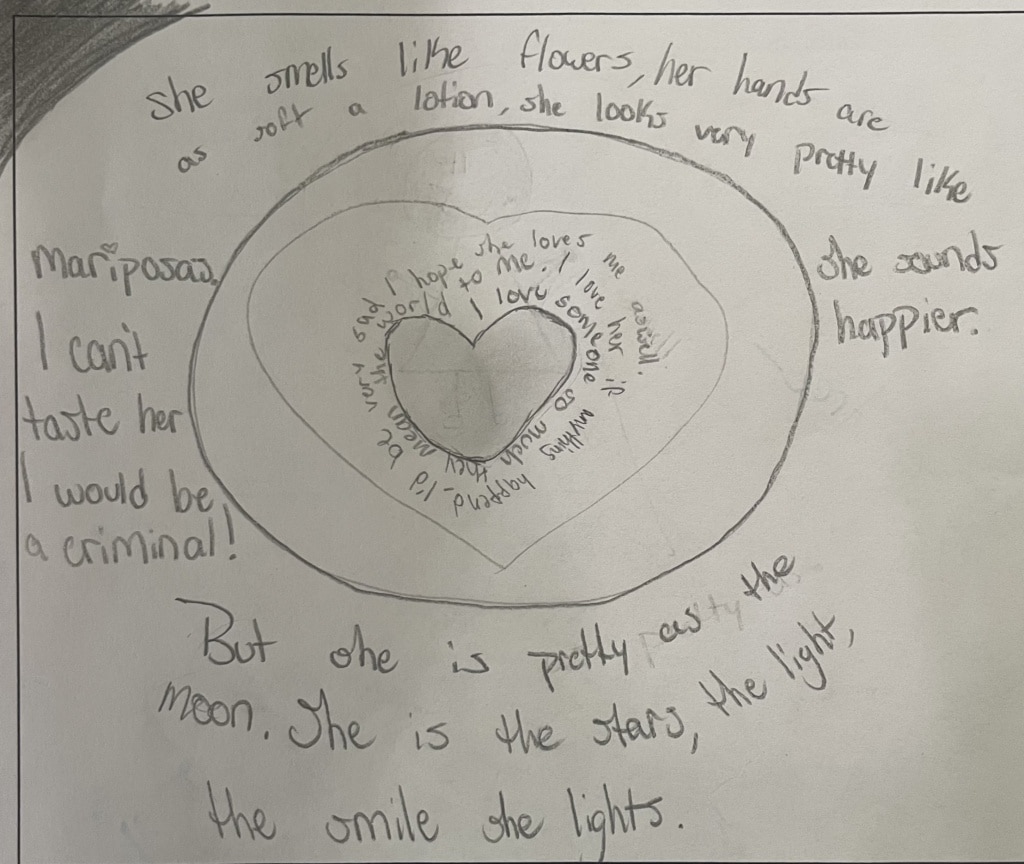 She smells like flowers, her hands are
as soft a lotion, she looks very pretty like
mariposas.
she sounds
happier.
I can't
taste her
I would be
a criminal!
I love someone so much they mean the world to me. I love her if anything happend I'd be very sad I hope she loves me aswell.
But she is pretty as the
moon. She is the stars, the light,
the smile she lights.